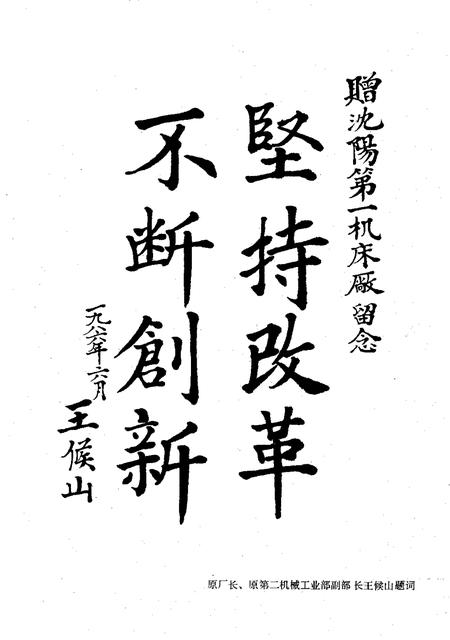 贈沈陽第一机床廠留念
堅持改革
不断創新
一九八六年六月
王候山
原厂长、原第二机械工业部副部 长王候山题词